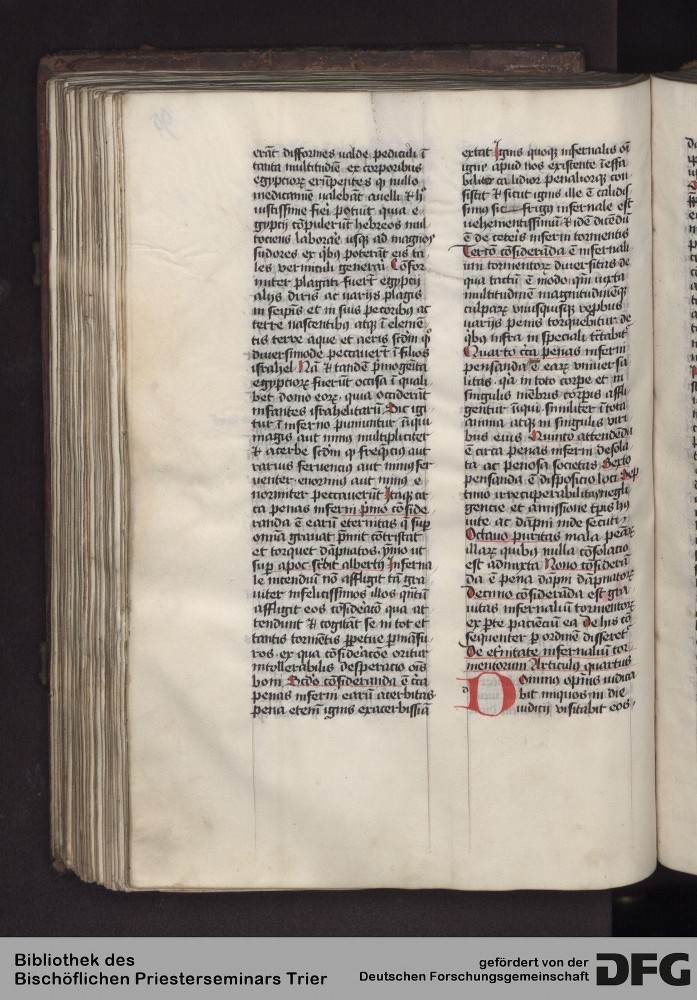 erāt difformes ualde pediculi ī
tanta multitudīe ex corporibus
egyptiorꝝ erūpentes qͥ nullo
medicamīe ualebāt auelli ⁊ hͦ
iustissime fieri potuit quia e
gyptii cōpulerūt hebreos mul
tociens laborar̄ usqꝫ ad magnos
sudores ex qͥbꝰ poterāt eis ta
les vermiculi generari Cōfor
miter plagati fuert̄ egyptii
alijs diris ac uarijs plagis
in seipīs et in suis pecoribꝰ ac
terre nascentibus atqꝫ ī elemē
tis terre aque et aeris scd̄m qͦ
diuersimode peccauer̄t ī filios
israhel Nā ⁊ tandē pͥmogeīta
egyptiorꝝ fuerūt occisa ī quali
bet domo eorꝝ quia occiderāt
infantes israhelitarū Sic igi
tur ī inferno puniuntur īiqui
magis aut minꝰ multipliciter
⁊ acerbe scd̄m qͦ freqͣncius aut
rarius feruencius aut minꝰ fer
uenter enormiꝰ aut minꝰ e
normiter peccauerūt Itaqꝫ cir
ca penas inferni pͥmo cōside
randa ē earū eternitas q̄ suꝑ
omīa grauat pͥmit cōtristat
et torquet dāpnatos ymo ut
suꝑ apoc scͥbit albertꝰ Inferna
le incendiū nō affligit tā gra
uiter infelicissimos illos qͣntū
affligit eos cōsideracō qua at
tendunt ⁊ cogitāt se in tot et
tantis tormētis ꝑpetue ꝑmāsu
ros ex qua cōsideracōe oritur
intollerabilis desperatio oīs
boni Scd̄o cōsideranda ē circa
penas inferni earū acerbitas
pena etenī ignis exacerbissīa
extat Ignis quoqꝫ infernalis oī
igni apud nos existente ieffa
biliter calidior penaliorqꝫ con
sistit ⁊ sicut ignis ille ē calidis
simus sic frigꝰ infernale est
vehementissimū ⁊ idē dicēdū
ē de ceteis inferni tormentis
Tercō cōsiderāda ē infernali
um tormentorꝝ diuersitas de
qua tactū ē modo qm̄ iuxta
multitudinē magnitudinēqꝫ
culparꝝ vniuscuiusqꝫ rep̄bus
uarijs penis torquebitur de
qͥbꝰ infra in speciali tractabit᷑
Quarto circa penas inferni
pensanda ē earꝝ vniuersa
litas qͣ in toto corpe et in
singulis mēbris corpis affli
gentur īiqui similiter ī tota
anima atqꝫ in singulis viri
bus eius Quinto attendēda
ē circa penas inferni desola
ta ac penosa societas Sexto
pensanda ē disposicio loci Sep
timo irrecuperabilitas negli
gencie et amissione tꝑis huͥ
vite ac dāpni inde secuti
Octauo puritas mala penarꝝ
illarꝝ quibꝰ nulla cōsolatio
est admixta Nono cōsiderā
da ē pena dāpni dāpnatorꝝ
Decimo cōsideranda est gra
uitas infernaliū tormentorꝝ
ex ꝑte pacienciū ea De his cō
sequenter ꝑ ordinē disseret᷑
De eternitate infernaliū tor
mentorum Articulꝰ quartus
Dominꝰ omīpns iudica
bit iniquos in die
iudicij visitabit eos
Bibliothek des
Bischöflichen Priesterseminars Trier
gefördert von der
Deutschen Forschungsgemeinschaft
DFG